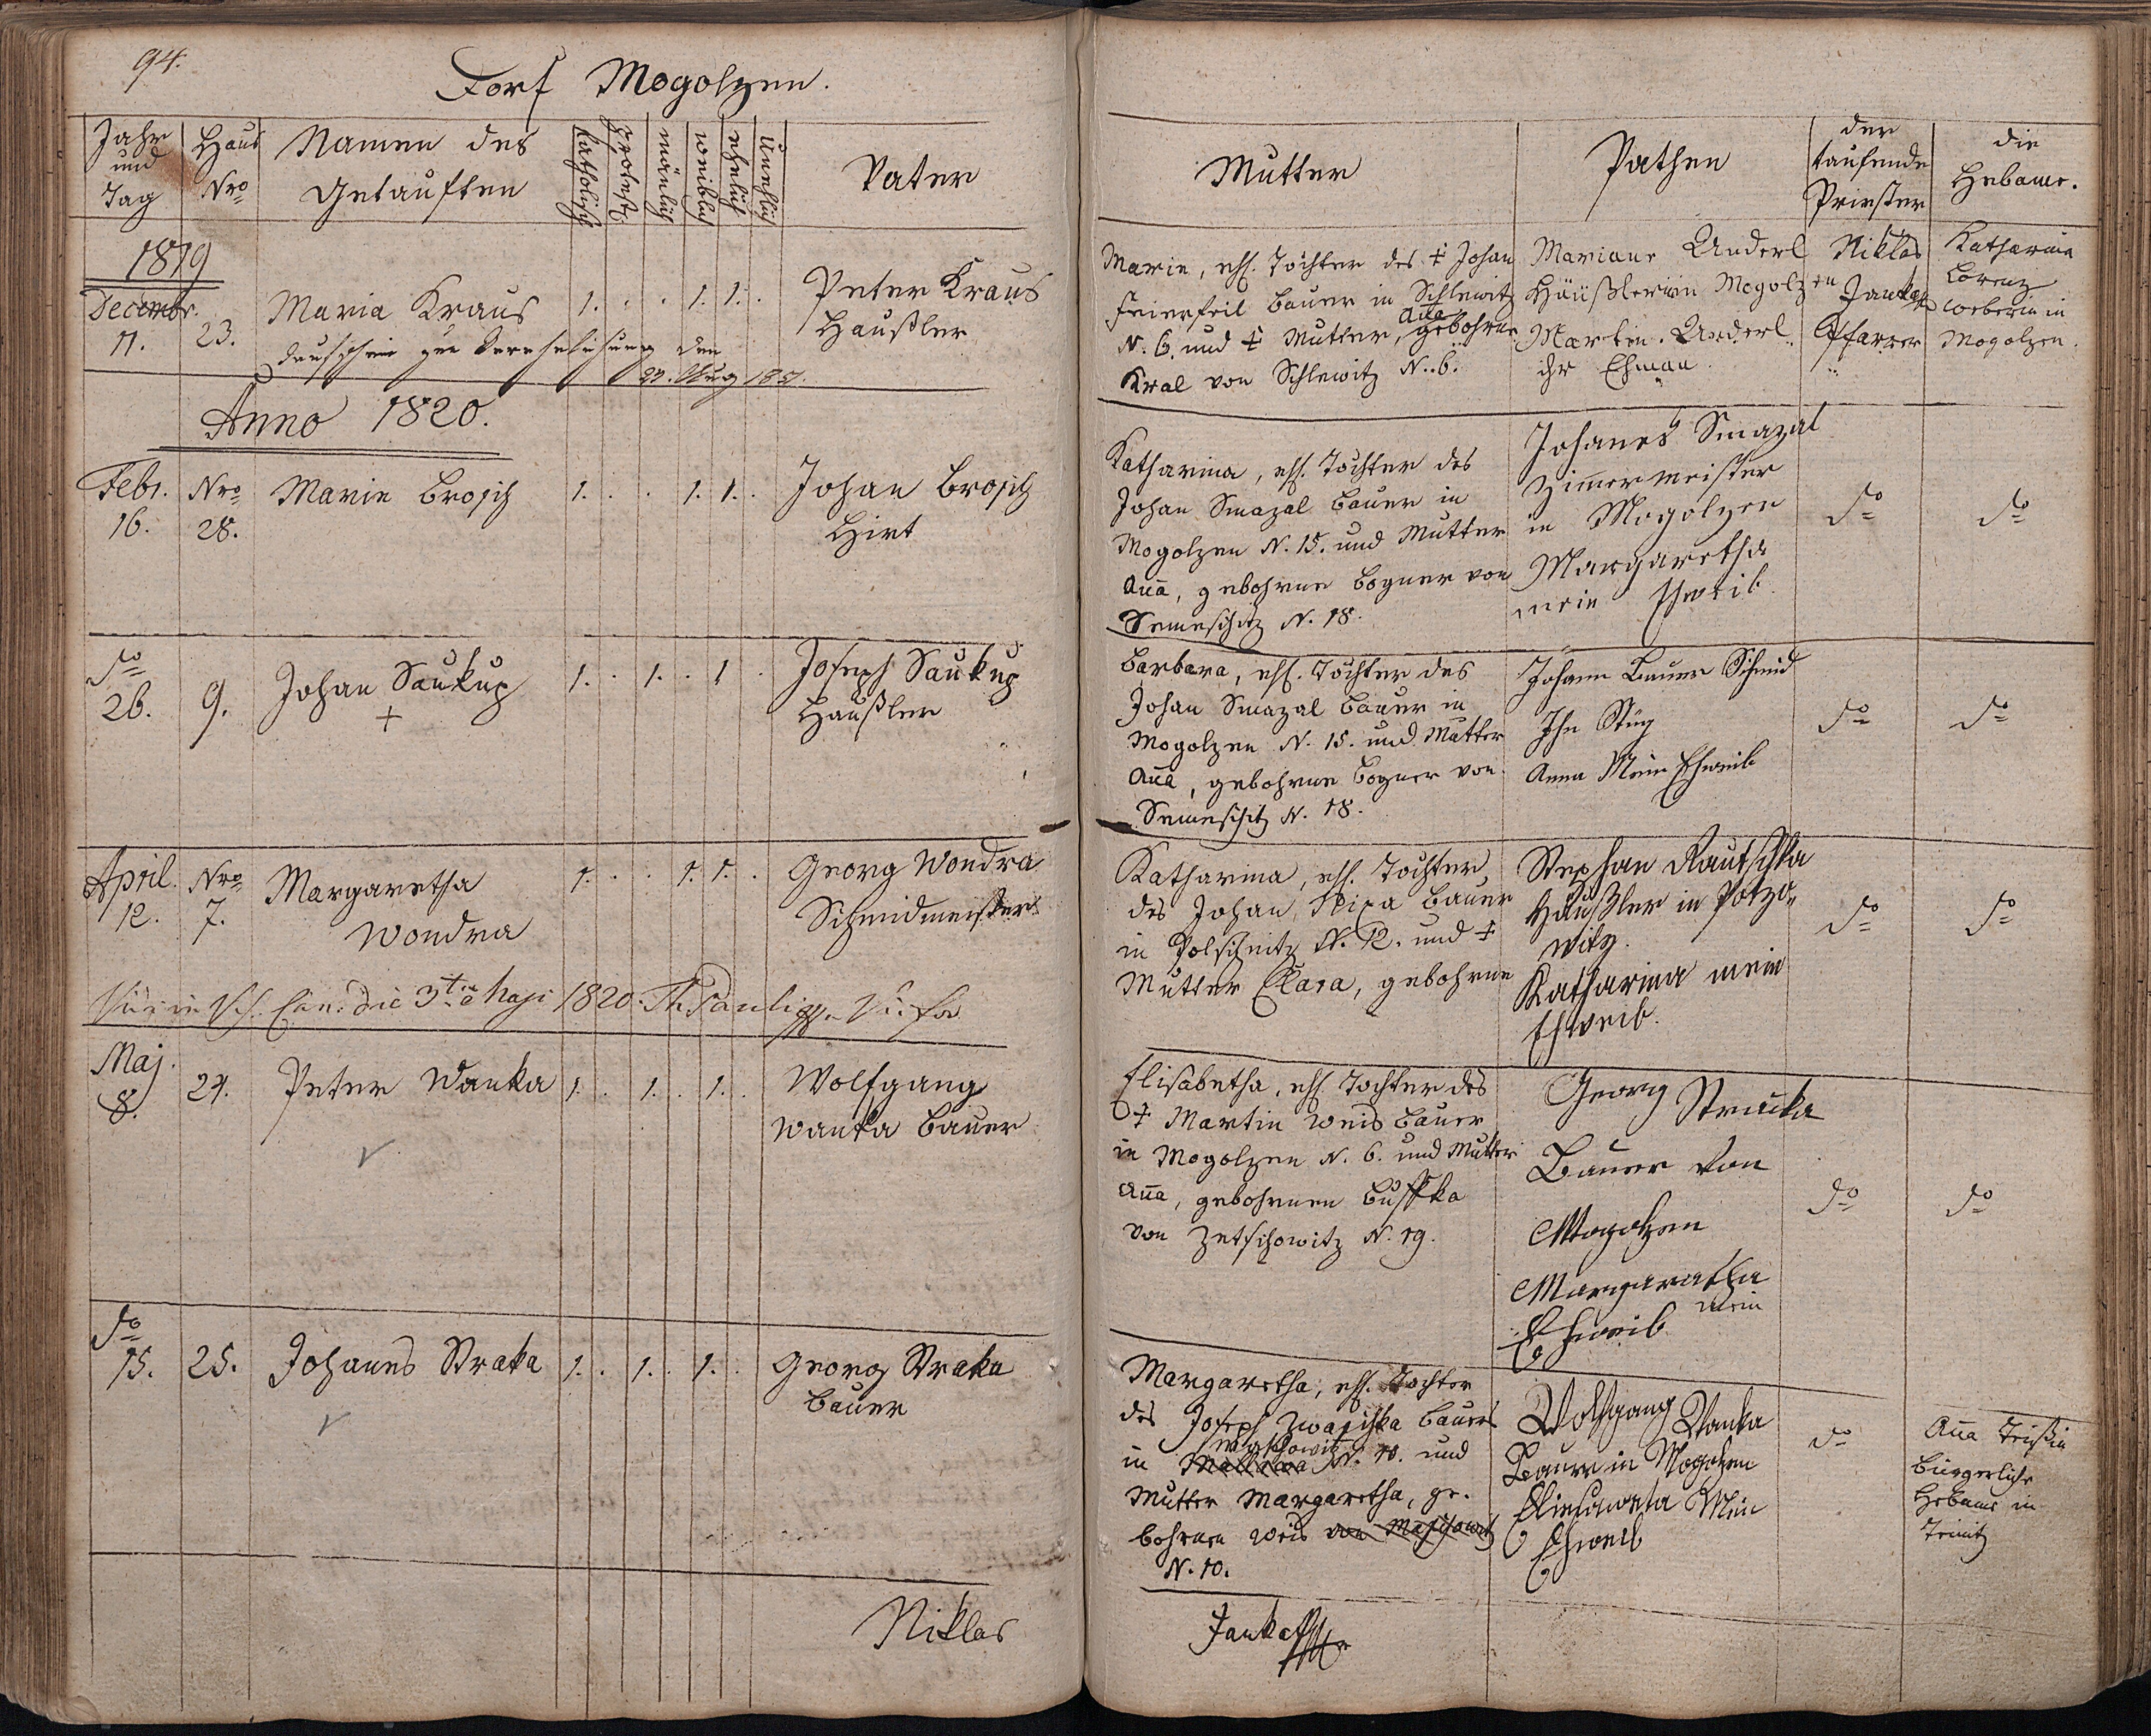 94.
Dorf Mogolzen.
Jahr und Tag
Haus Nro
Namen des Getauften
Katholisch
Protest.
mänlich
weiblich
ehelich
Unehlich
Vater
Mutter
Pathen
der taufende Priester
die Hebame.
1819
Decembr.
11.
23.
Maria Kraus
1. . . 1. 1. .
Peter Kraus
Haußler
Taufschein zur Verehelichung den
Aug 1851.
Marie, ehl. Tochter des ‡ Johan
Feierfeil Bauer in Schlewitz
N. 6. und ‡ Mutter, Aña gebohrne
Kral von Schlewitz N. 6.
Mariane Anderl
Häußlerin Mogolzen
Martin Anderl
ihr Ehman
Niklas
Janka
Pfarrer
Katharina
Lorenz
Weberin in
Mogolzen.
Anno 1820.
Febr.
16.
Nro
28.
Marie Brosch
1. . . 1. 1. .
Johan Brosch
Hirt
Katharina, ehl. Tochter des
Johan Smazal Bauer in
Mogolzen N. 15. und Mutter
Aña, gebohrne Bogner von
Semeschitz N. 18.
Johanes Smazal
Zimmermeister
in Mogolzen
Margaretha
mein Eheweib.
do
do
do
26.
9.
Johan Saukup
+
1. . 1. . 1 .
Joseph Saukup
Haußler
Barbara, ehl. Tochter des
Johan Smazal Bauer in
Mogolzen N. 15. und Mutter
Aña, gebohrne Bogner von
Semeschitz N. 18.
Johann Bauer Schmid
Anna Mein Eheweib
do
do
April.
12.
Nro
7.
Margaretha
Wondra
1. . . 1. 1. .
Georg Wondra
Schmidmeister
die 3tia Maji 1820.
Katharina, ehl. Tochter
des Johan Bauer
in N. 12. und ‡
Mutter Clara, gebohrne
Stephan Rautschka
Häußler in Potzo-
witz.
Katharina mein
Eheweib.
do
do
Maj.
8.
24.
Peter Wanka
1. . 1. . 1. .
Wolfgang
Wanka Bauer
Elisabetha, ehl Tochter des
‡ Martin Weis Bauer
in Mogolzen N. 6. und Mutter
Aña, gebohrnen
von Zetschowitz N. 19.
Georg Straka
Bauer von
Mogolzen
Margaretha
mein
Eheweib
do
do
do
15.
25.
Johanes Straka
1. . 1. . 1. .
Georg Straka
Bauer
Margaretha, ehl. Tochter
des Joseph Zwaschka Bauers
in N. 10. und
Mutter Margaretha, ge-
bohrnen Weis von Maschowitz
N. 10.
Wolfgang Wanka
Bauer in Mogolzen
Mein
Eheweib
do
Aña
bürgerliche
Hebame in
Niklas
Janka